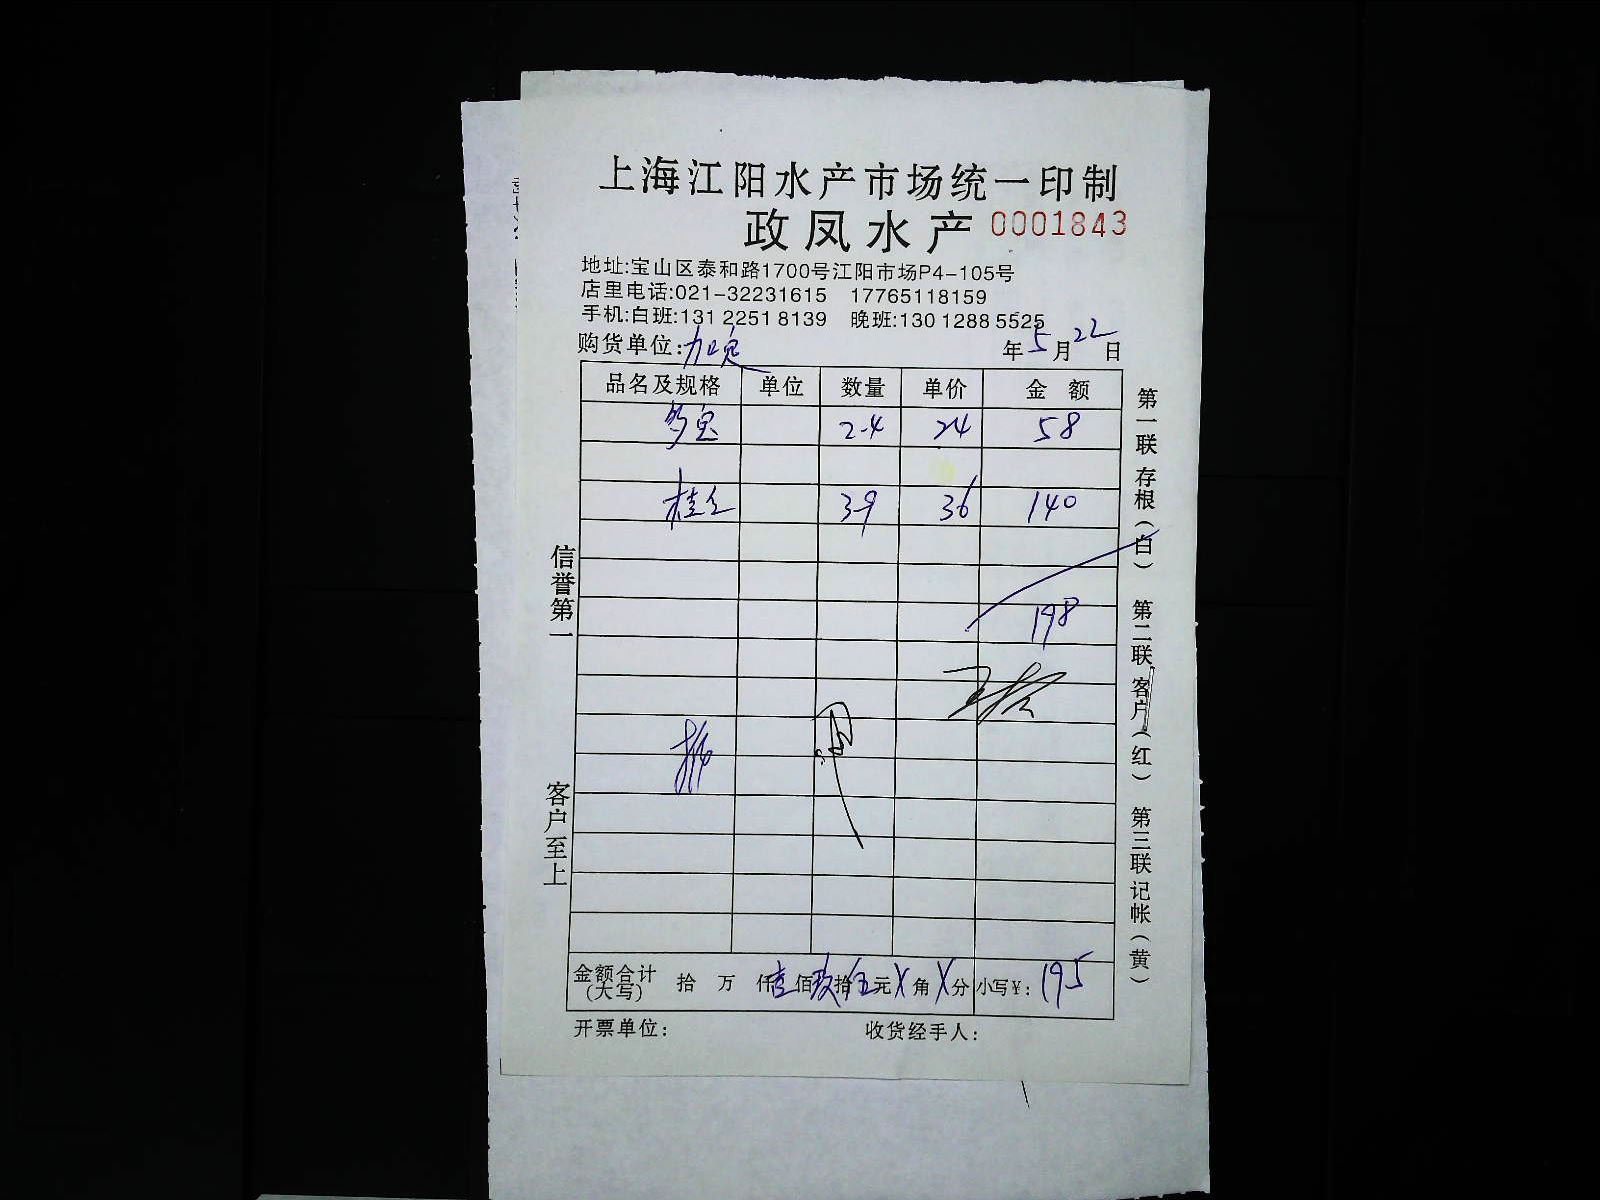 上海江阳水产市场统一印制
政凤水产 0001843
地址:宝山区泰和路1700号江阳市场P4-105号
店里电话:021-32231615 17765118159
手机:白班:131 2251 8139 晚班:130 1288 5525
购货单位: 年5月22日
品名及规格 单位 数量 单价 金 额
多宝 2-4 24 58
桂 39 36 140
198
金额合计(大写) 拾 万 仟壹佰玖拾伍元X角X分 小写¥: 195
开票单位: 收货经手人:
信誉第一
客户至上
第一联 存根(白) 第二联 客户(红) 第三联 记帐(黄)